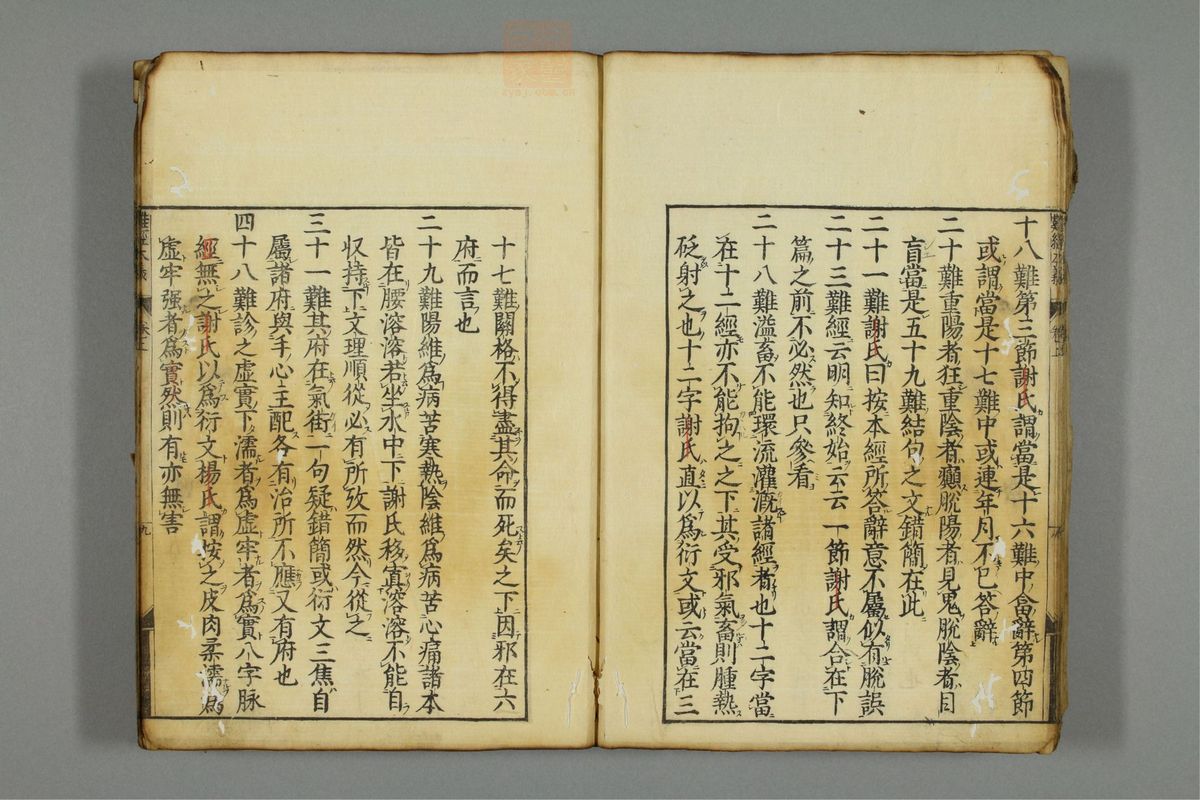 十八難第三節謝氏謂當是十六難中畣辭第四節
或謂當是十七難中或連年月不已答辭
二十難重陽者狂重陰者癲脫陽者見鬼脫陰者目
盲當是五十九難結句之文錯簡在此
二十一難謝氏曰按本經所答辭意不屬似有脫誤
二十三難經云明知終始云云一節謝氏謂合在下
篇之前不必然也只參看
二十八難溢畜不能環流灌漑諸經者也十二字當
在十二經亦不能拘之之下其受邪氣畜則腫熱
砭射之也十二字謝氏直以爲衍文或云當在三
十七難關格不得盡其命而死矣之下因邪在六
府而言也
二十九難陽維爲病苦寒熱陰維爲病苦心痛諸本
皆在腰溶溶若坐水中下謝氏移眞溶溶不能自
収持下文理順從必有所攷而然今從之
三十一難其府在氣街一句疑錯簡或衍文三焦自
屬諸府與手心主配各有治所不應又有府也
四十八難診之虛實下濡者爲虛牢者爲實八字脉
經無之謝氏以爲衍文楊氏謂按之皮肉柔濡爲
虛牢强者爲實然則有亦無害
難經本義
九